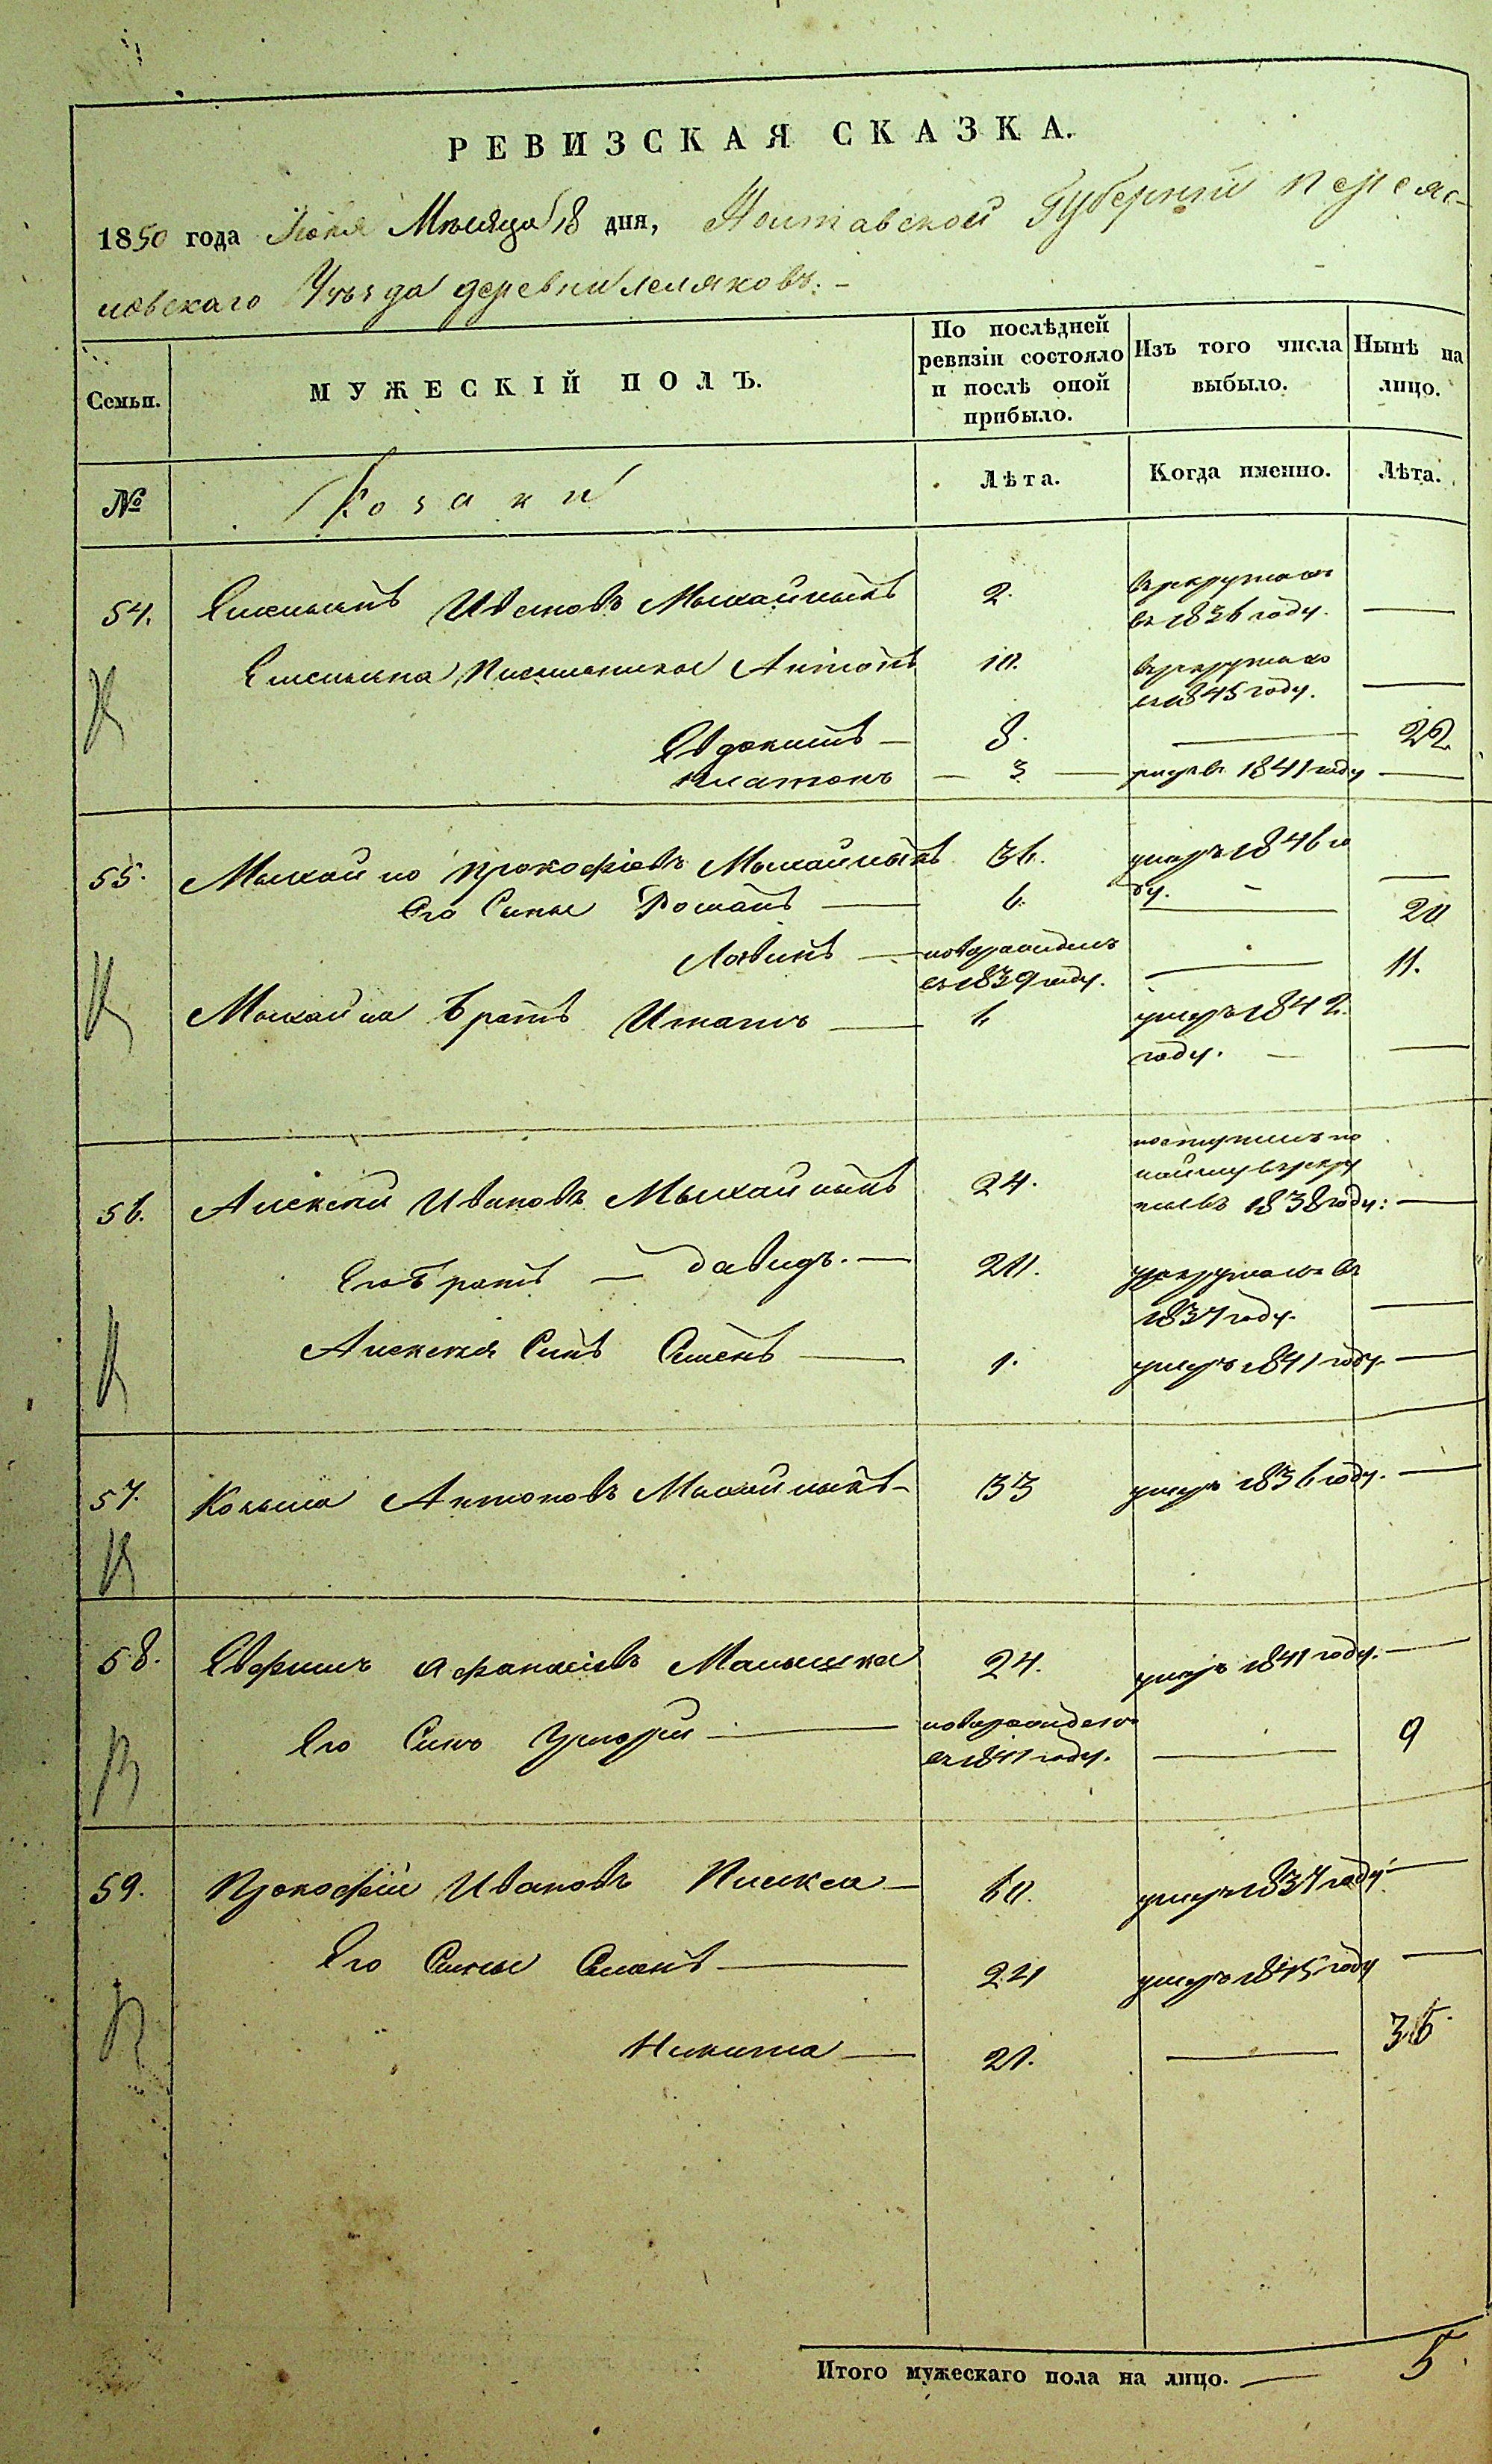 РЕВИЗСКАЯ СКАЗКА.
1850 года Июня Мѣсяца 18 дня, Полтавской Губерніи Переяс-
ловскаго Уѣзда деревни Леляковъ.
Семьи.
МУЖЕСКІЙ ПОЛЪ.
По послѣдней ревизіи состояло и послѣ оной прибыло.
Изъ того числа выбыло.
Нынѣ на лицо.
№
Козаки
Лѣта.
Когда именно.
Лѣта.
54. Ивановъ 2. въ рекрутахъ
въ 1836 году. —
Антонъ 10. въ рекрутахъ
въ 1845 году. —
Евдокимъ — 8. — 22.
Платонъ — 3 — умеръ в 1841 году —
55. Прокофіевъ 36. умеръ 1846 го
ду. —
Его Сины Романъ — 6. — 20
Логвинъ — новорожденъ
въ 1839 году. — 11.
братъ Игнатъ — 6 умеръ 1842
году. — —
56. Алексѣй Ивановъ 24. поступилъ по
найму въ рекру
ты въ 1838 году: —
Его братъ — Давидъ. — 20. в рекрутахъ въ
1837 году. —
Алексѣя Синъ Семенъ — 1. умеръ 1841 году. —
57. Козьма Антоновъ 33 умеръ 1836 году. —
58. Евфимъ Афанасіевъ Малышка 24. умеръ 1841 году. —
Его Синъ Григорій — новорожденъ
въ 1841 году. — 9
59. Прокофій Ивановъ 60. умеръ 1837 году —
Его Сины Семенъ — 24 умеръ 1845 году —
Никита — 21. — 36.
Итого мужескаго пола на лицо. — 5.